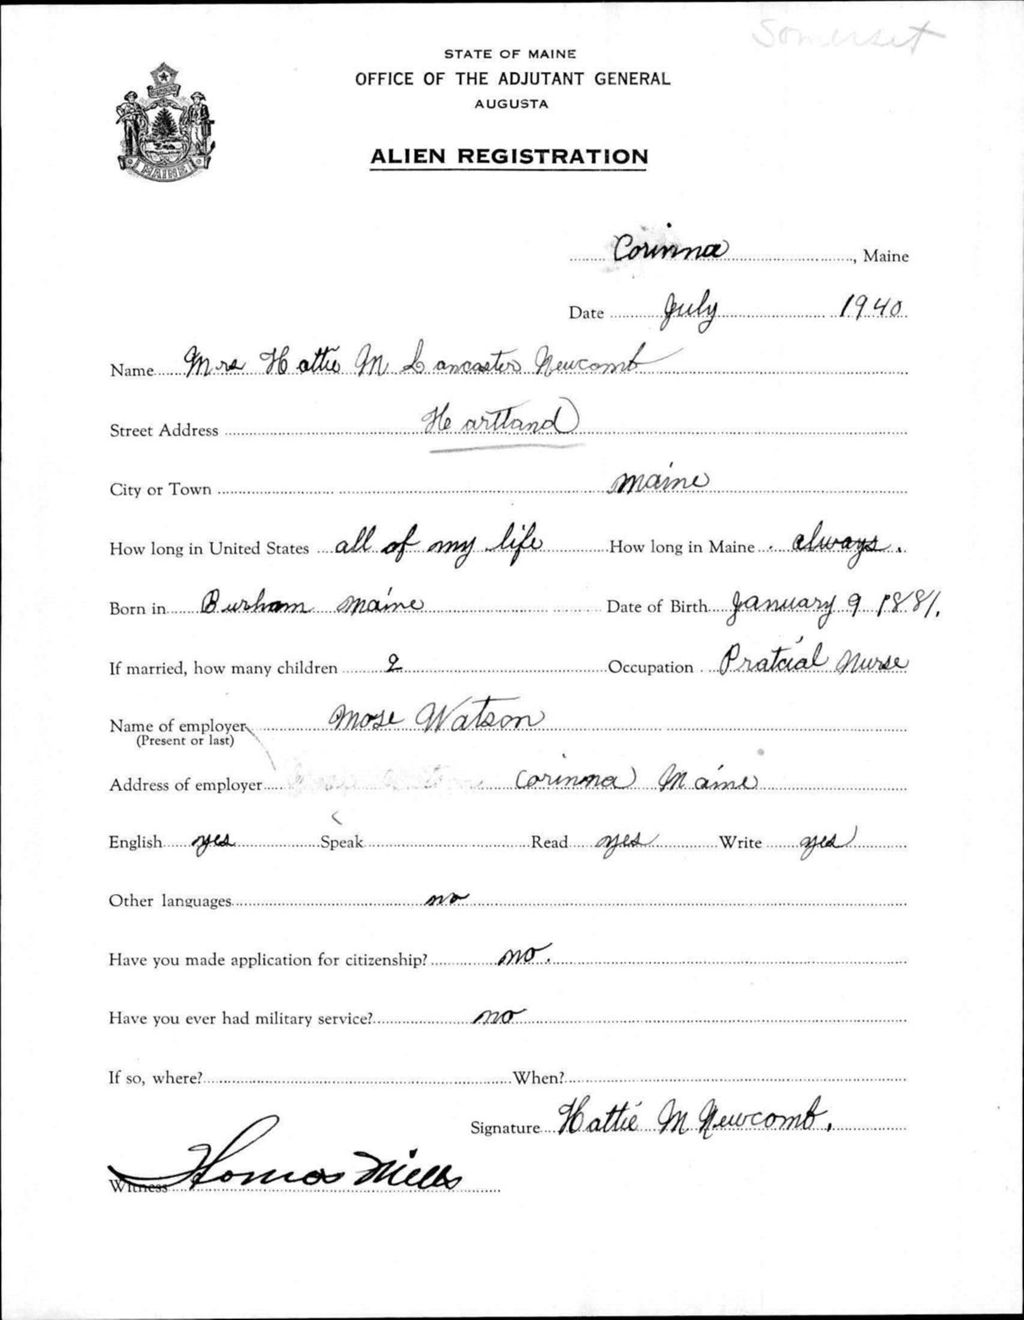 Somerset
STATE OF MAINE
OFFICE OF THE ADJUTANT GENERAL
AUGUSTA
ALIEN REGISTRATION
MAINE
Corinna, Maine
Date July 1940
Name Mrs Hattie M Lancaster Newcomb
Street Address Heartland
City or Town maine
How long in United States all of my life How long in Maine always.
Born in Burham maine Date of Birth January 9 1881.
If married, how many children 2 Occupation Pratcial Nurse
Name of employer Mose Watson
(Present or last)
Address of employer Corinna Maine
English yes Speak Read yes Write yes
Other languages no
Have you made application for citizenship? no.
Have you ever had military service? no
If so, where? When?
Signature Hattie M Newcomb.
Witness Mills